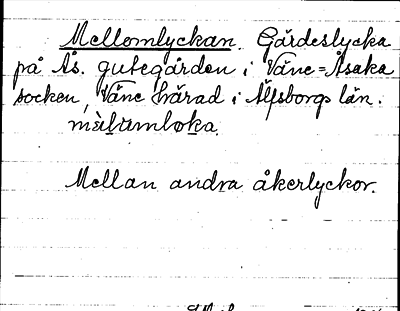 Mellomlyckan. Gärdeslycka
på Ås. gutegården i Väne=Åsaka
socken, Väne härad i Älfsborgs län.
mälumloka.
Mellan andra åkerlyckor.